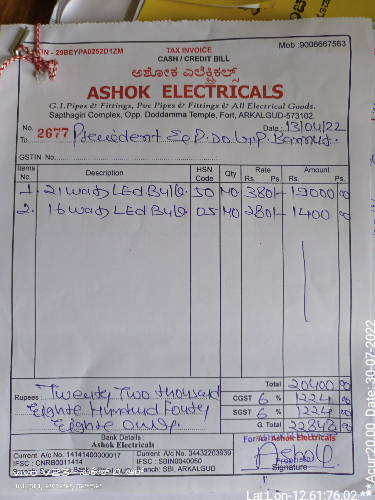 Mob :9008667563
TAX INVOICE
IN - 29BEYPA0252D1ZM
CASH / CREDIT BILL
ಅಶೋಕ ಎಲೆಕ್ಟ್ರಿಕಲ್ಸ್
ASHOK ELECTRICALS
G.I.Pipes & Fittings, Pvc Pipes & Fittings & All Electrical Goods.
Sapthagiri Complex, Opp. Doddamma Temple, Fort, ARKALGUD-573102.
No. 2677 Date: 13/04/22
To
GSTIN No.
Items No. Description HSN Code Qty Rate Rs. Ps. Amount Rs. Ps.
1. 21 watts LEd Bulb. 50 NO 380/- 19000 00
2. 16 watts LEd Bulb 05 NO 280/- 1400 00
Total 20400 00
Rupees : Twenty Two thousand
Eighte Hundred Fourty
Eighte only.
CGST 6 % 1224
SGST 6 % 1224
G. Total 22848 00
Bank Details
Ashok Electricals
Current A/c No. 14141400000017 Current A/c No. 34432203939
IFSC : CNRB0011414 IFSC : SBIN0040050
Branch: SBI, ARKALGUD
For Ashok Electricals
Signature
Lat Lon-12.61:76.02 ** Acur:20.00 Date: 30-07-2022